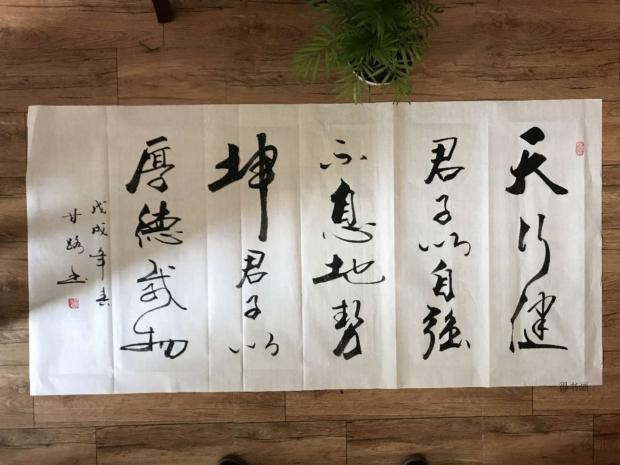 天行健
君子以自強
不息地勢
坤君子以
厚德載物
戊戌年春
甘路书
得书画